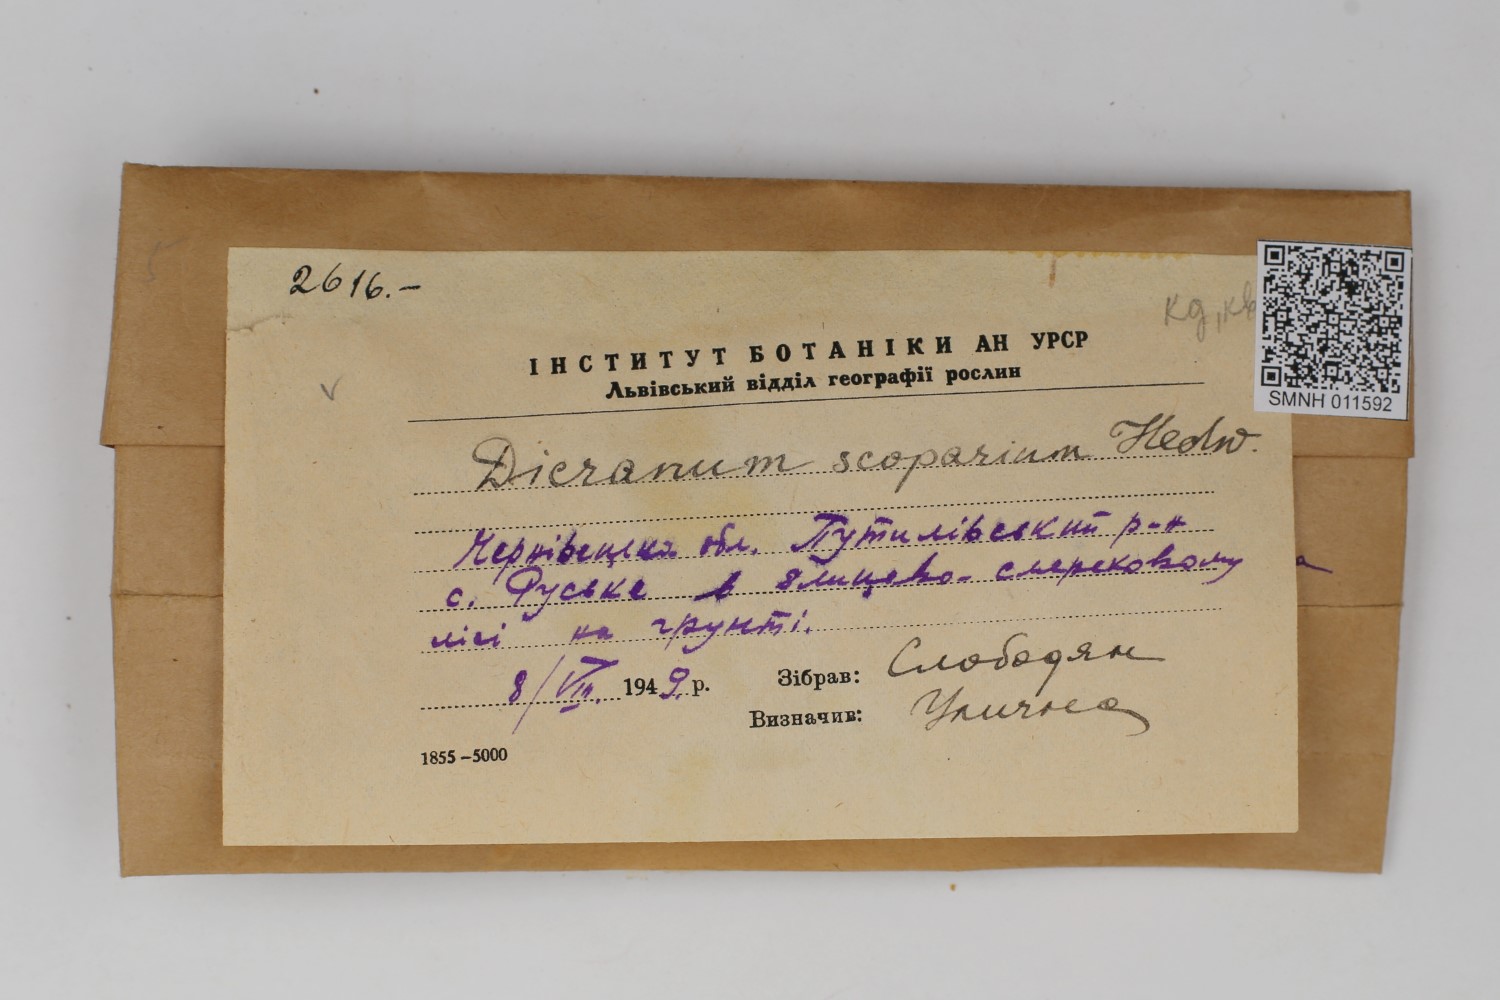 2616.–
кд, кв
ІНСТИТУТ БОТАНІКИ АН УРСР
Львівський відділ географії рослин
SMNH 011592
Dicranum scoparium Hedw.
Чернівецька обл. Путилівський р-н
с. Руське в ялицево-смерековому
лісі на грунті.
8/VIII. 1949. р.
Зібрав: Слободян
Визначив: Улична
1855–5000